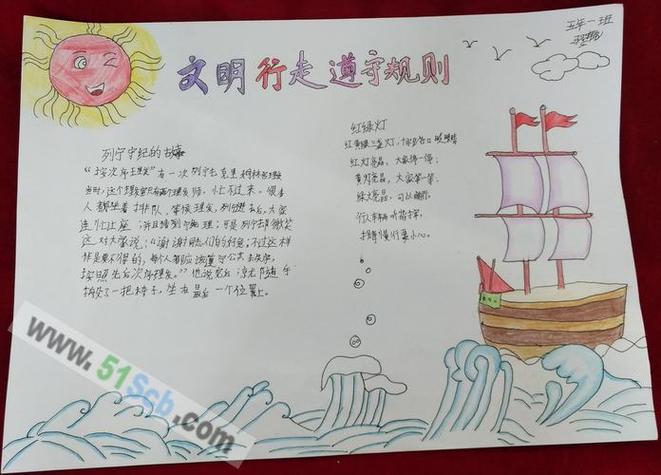 五年一班
文明行走 遵守规则
列宁守纪的故事
"按次序理发"有一次列宁去克里姆林宫理发
当时,这个理发室只有两个理发师,忙不过来。很多
人都坐着排队,等候理发,列宁进去后,大家
连忙让座,并且请列宁先理;可是列宁却微笑
这对大家说:"谢谢同志们的好意;不过这样
作是要不得的,每个人都应该遵守公共秩序,
按照先后次序理发。"他说完后
搬了一把椅子,坐在最后一个位置上。
红绿灯
红黄绿三盏灯,
红灯亮晶,大家停一停;
黄灯亮晶,大家等一等;
绿灯亮晶,可以
行人车辆听指挥,
慢行要小心。
www.51Scb.com